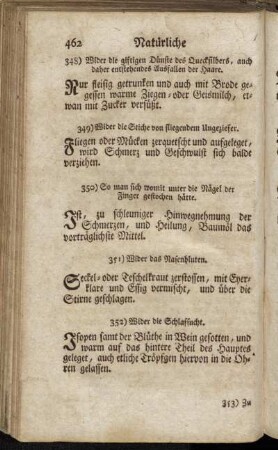 462 Natürliche
348) Wider die giftigen Dünste des Quecksilbers, auch
daher entstehendes Ausfallen der Haare.
Nur fleisig getrunken und auch mit Brode ge-
gessen warme Ziegen- oder Geismilch, et-
wan mit Zucker versüßt.
349) Wider die Stiche von fliegendem Ungeziefer.
Fliegen oder Mücken zerquetscht und aufgeleget,
wird Schmerz und Geschwulst sich balde
verziehen.
350) So man sich womit unter die Nägel der
Finger gestochen hätte.
Ist, zu schleuniger Hinwegnehmung der
Schmerzen, und Heilung, Baumöl das
vorträglichste Mittel.
351) Wider das Nasenbluten.
Seckel- oder Teschelkraut zerstossen, mit Eyer-
klare und Essig vermischt, und über die
Stirne geschlagen.
352) Wider die Schlafsucht.
Isopen samt der Blüthe in Wein gesotten, und
warm auf das hintere Theil des Hauptes
geleget, auch etliche Tröpfgen hiervon in die Oh-
ren gelassen.
353) Zu